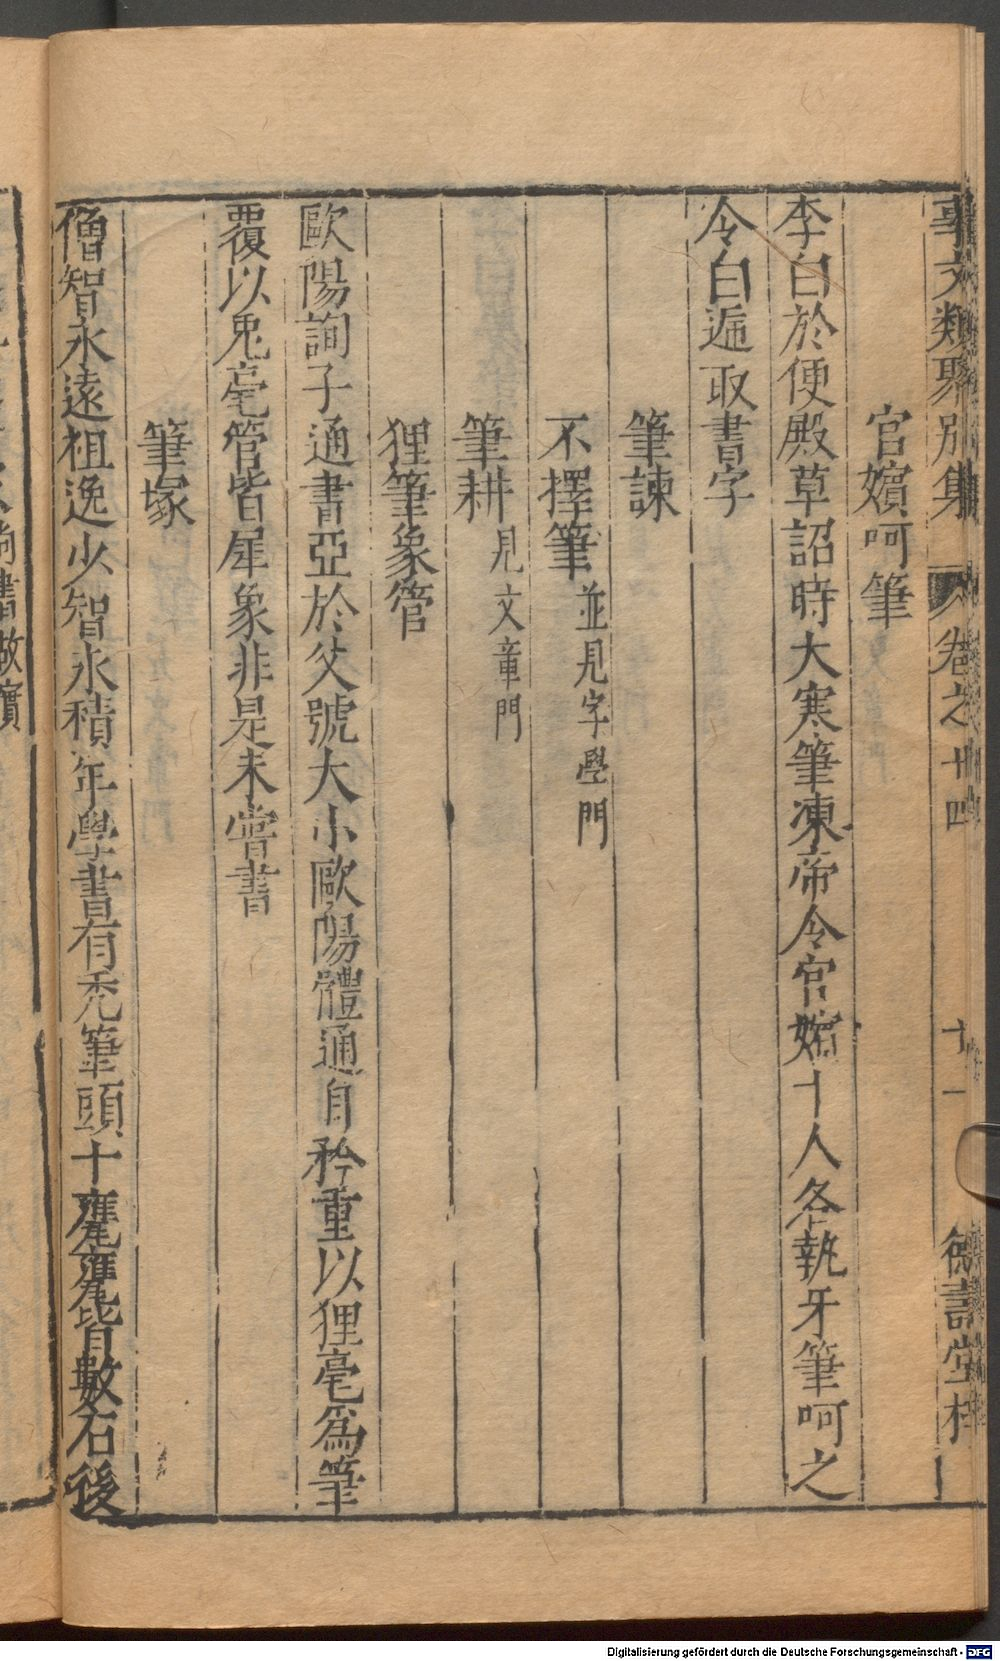 事文類聚別集 卷之十四 十一 德壽堂梓
官嬪呵筆
李白於便殿草詔時大寒筆凍帝令官嬪十人各執牙筆呵之
令白遞取書字
筆諫
不擇筆 並見字學門
筆耕 見文章門
狸筆象管
歐陽詢子通書亞於父號大小歐陽體通自矜重以狸毫爲筆
覆以兎毫管皆犀象非是未嘗書
筆塚
僧智永遠祖逸少智永積年學書有禿筆頭十甕甕皆數石後
Digitalisierung gefördert durch die Deutsche Forschungsgemeinschaft - DFG